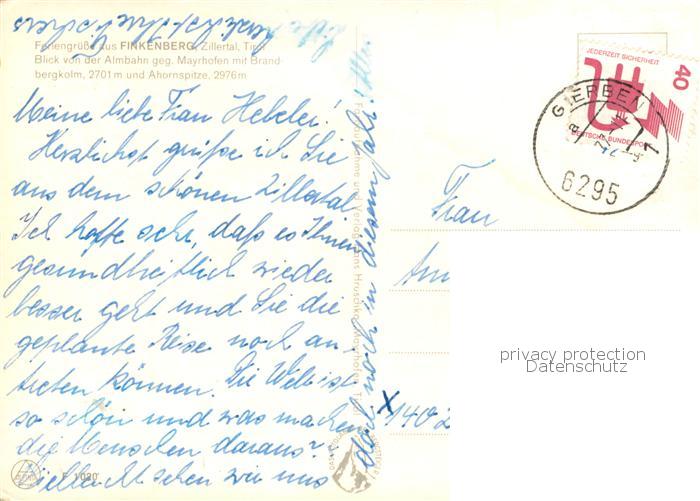 Feriengrüße aus FINKENBERG, Zillertal, Tirol
Blick von der Almbahn geg. Mayrhofen mit Brand-
bergkolm, 2701 m und Ahornspitze, 2976 m
Meine liebe Frau Hebeler!
Herzlichst grüße ich Sie
aus dem schönen Zillertal.
Ich hoffe sehr, daß es Ihnen
gesundheitlich wieder
besser geht und Sie die
geplante Reise noch an-
treten können. Die Welt ist
so schön und was machen
die Menschen daraus?
Vielleicht sehen wir uns
doch noch in diesem Jahr!
Ihre
F 1020
Mayrhofen, Tirol
JEDERZEIT SICHERHEIT
40
DEUTSCHE BUNDESPOST
6295
Frau
Am
X 1402
privacy protection
Datenschutz